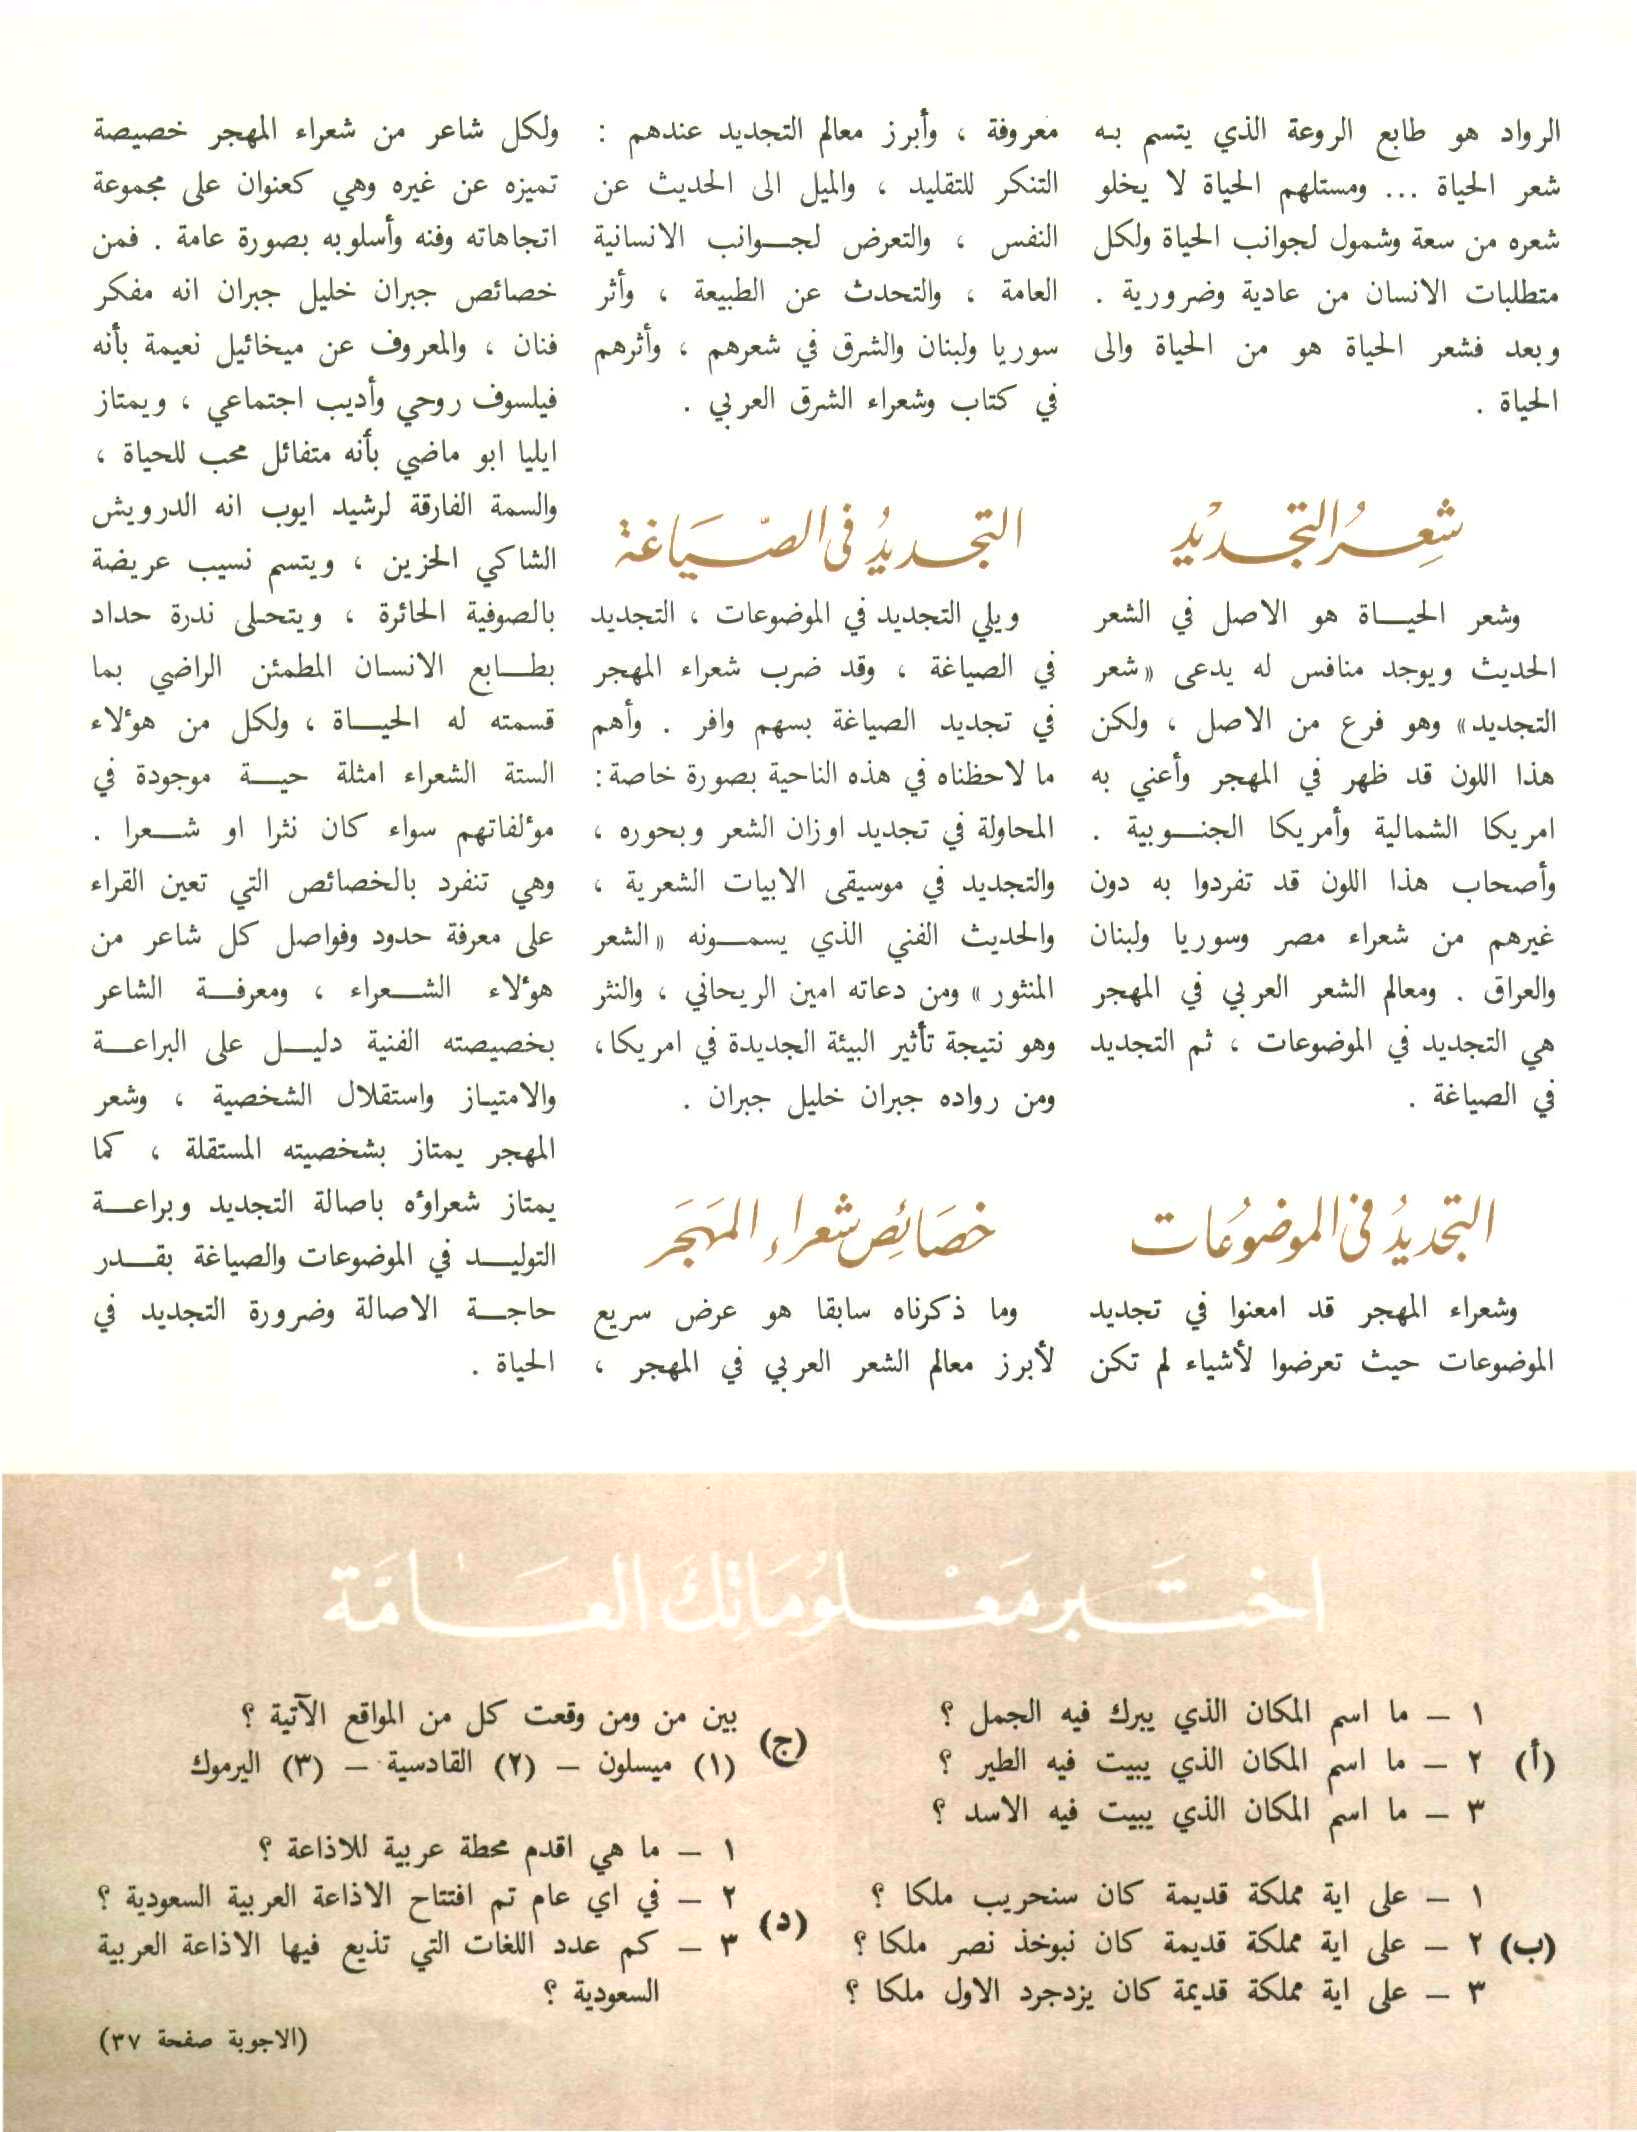 الرواد هو طابع الروعة الذي يتسم به
شعر الحياة ... ومستلهم الحياة لا يخلو
شعره من سعة وشمول لجوانب الحياة ولكل
متطلبات الانسان من عادية وضرورية .
وبعد فشعر الحياة هو من الحياة والى
الحياة .
شعر التجديد
وشعر الحيـاة هو الاصل في الشعر
الحديث ويوجد منافس له يدعى «شعر
التجديد» وهو فرع من الاصل ، ولكن
هذا اللون قد ظهر في المهجر وأعني به
امريكا الشمالية وأمريكا الجنـوبية .
وأصحاب هذا اللون قد تفردوا به دون
غيرهم من شعراء مصر وسوريا ولبنان
والعراق . ومعالم الشعر العربي في المهجر
هي التجديد في الموضوعات ، ثم التجديد
في الصياغة .
التجديدُ في الموضوُعات
وشعراء المهجر قد امعنوا في تجديد
الموضوعات حيث تعرضوا لأشياء لم تكن
معروفة ، وأبرز معالم التجديد عندهم :
التنكر للتقليد ، والميل الى الحديث عن
النفس ، والتعرض لجـوانب الانسانية
العامة ، والتحدث عن الطبيعة ، وأثر
سوريا ولبنان والشرق في شعرهم ، وأثرهم
في كتاب وشعراء الشرق العربي .
التجديدُ في الصّياغة
ويلي التجديد في الموضوعات ، التجديد
في الصياغة ، وقد ضرب شعراء المهجر
في تجديد الصياغة بسهم وافر . وأهم
ما لاحظناه في هذه الناحية بصورة خاصة :
المحاولة في تجديد اوزان الشعر وبحوره ،
والتجديد في موسيقى الابيات الشعرية ،
والحديث الفني الذي يسمـونه «الشعر
المنثور» ومن دعاته امين الريحاني ، والنثر
وهو نتيجة تأثير البيئة الجديدة في امريكا ،
ومن رواده جبران خليل جبران .
خصَائِص شعراء المهَجَر
وما ذكرناه سابقا هو عرض سريع
لأبرز معالم الشعر العربي في المهجر ،
ولكل شاعر من شعراء المهجر خصيصة
تميزه عن غيره وهي كعنوان على مجموعة
اتجاهاته وفنه وأسلوبه بصورة عامة . فمن
خصائص جبران خليل جبران انه مفكر
فنان ، والمعروف عن ميخائيل نعيمة بأنه
فيلسوف روحي وأديب اجتماعي ، ويمتاز
ايليا ابو ماضي بأنه متفائل محب للحياة ،
والسمة الفارقة لرشيد ايوب انه الدرويش
الشاكي الحزين ، ويتسم نسيب عريضة
بالصوفية الحائرة ، ويتحلى ندرة حداد
بطـابع الانسان المطمئن الراضي بما
قسمته له الحيـاة ، ولكل من هوٴلاء
الستة الشعراء امثلة حيـة موجودة في
موٴلفاتهم سواء كان نثرا او شـعرا .
وهي تنفرد بالخصائص التي تعين القراء
على معرفة حدود وفواصل كل شاعر من
هوٴلاء الشـعراء ، ومعرفـة الشاعر
بخصيصته الفنية دليـل على البراعـة
والامتيـاز واستقلال الشخصية ، وشعر
المهجر يمتاز بشخصيته المستقلة ، كما
يمتاز شعراوٴه باصالة التجديد وبراعـة
التوليـد في الموضوعات والصياغة بقـدر
حاجـة الاصالة وضرورة التجديد في
الحياة .
اختَبر مَعْلومَاتِكَ العَامَّة
(أ)
١ – ما اسم المكان الذي يبرك فيه الجمل ؟
٢ – ما اسم المكان الذي يبيت فيه الطير ؟
٣ – ما اسم المكان الذي يبيت فيه الاسد ؟
(ب)
١ – على اية مملكة قديمة كان سنحريب ملكا ؟
٢ – على اية مملكة قديمة كان نبوخذ نصر ملكا ؟
٣ – على اية مملكة قديمة كان يزدجرد الاول ملكا ؟
(ج)
بين من ومن وقعت كل من المواقع الآتية ؟
(١) ميسلون – (٢) القادسية – (٣) اليرموك
(د)
١ – ما هي اقدم محطة عربية للاذاعة ؟
٢ – في اي عام تم افتتاح الاذاعة العربية السعودية ؟
٣ – كم عدد اللغات التي تذيع فيها الاذاعة العربية
السعودية ؟
(الاجوبة صفحة ٣٧)